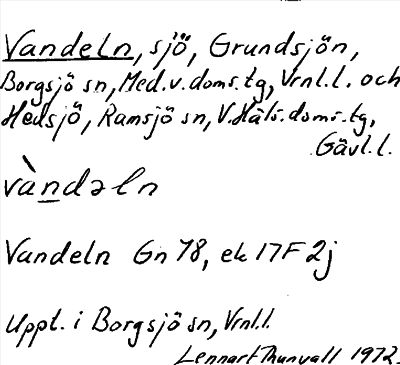 Vandeln, sjö, Grundsjön,
Borgsjö sn, Med.v.doms.tg, Vrnl.l. och
Hedsjö, Ramsjö sn, V.Häls.doms.tg,
Gävl.l.
vàndəln
Vandeln Gn 78, ek 17F 2j
Uppt. i Borgsjö sn, Vrnl.l.
Lennart Thunvall 1972.